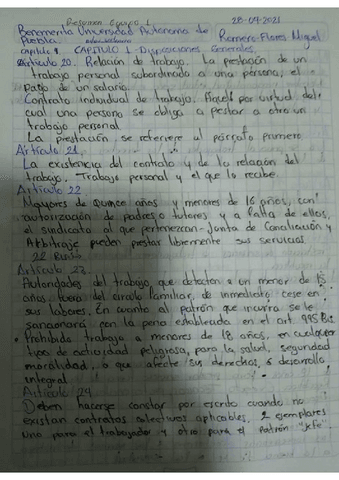 Resumen Equipo 1 28-04-2021
Benemerita Universidad Autonoma de
Puebla. Romero Flores Miguel
Capitulo 1 CAPITULO 1 Disposiciones Generales.
Articulo 20. Relación de trabajo. La prestación de un
trabajo personal subordinado a una persona, el
pago de un salario.
Contrato individual de trabajo. Aquel por virtud del
cual una persona se obliga a pestar a otro un
trabajo personal.
La prestación se referiere al párrafo primero
Airticulo 21
La existencia del contrato y de la relación del
trabajo. Trabajo personal y el que lo recibe.
Articulo 22
Mayores de quince años y menores de 16 años, con
autorización de padres o tutores y a falta de ellos,
el sindicato al que pertenezcan - Junta de Conciliación y
Arbitraje pueden prestar libremente sus servicios
22
Articulo 23.
Autoridades del trabajo, que detecten a un menor de 15
años, fuera del circulo familiar, de inmediato, cese en
sus labores. En cuanto al patrón que incurra se le
sancionará con la pena establecida en el art. 995 Bis.
Prohibido trabajo a menores de 18 años, en cualquier
tipo de actividad peligrosa, para la salud, seguridad
moralidad, o que afecte sus derechos, o desarrollo
integral
Articulo 24
Deben hacerse constar por escrito cuando no
existan contratos colectivos aplicables, 2 ejemplares
uno para el trabajador y otro para el patrón "Jefe"